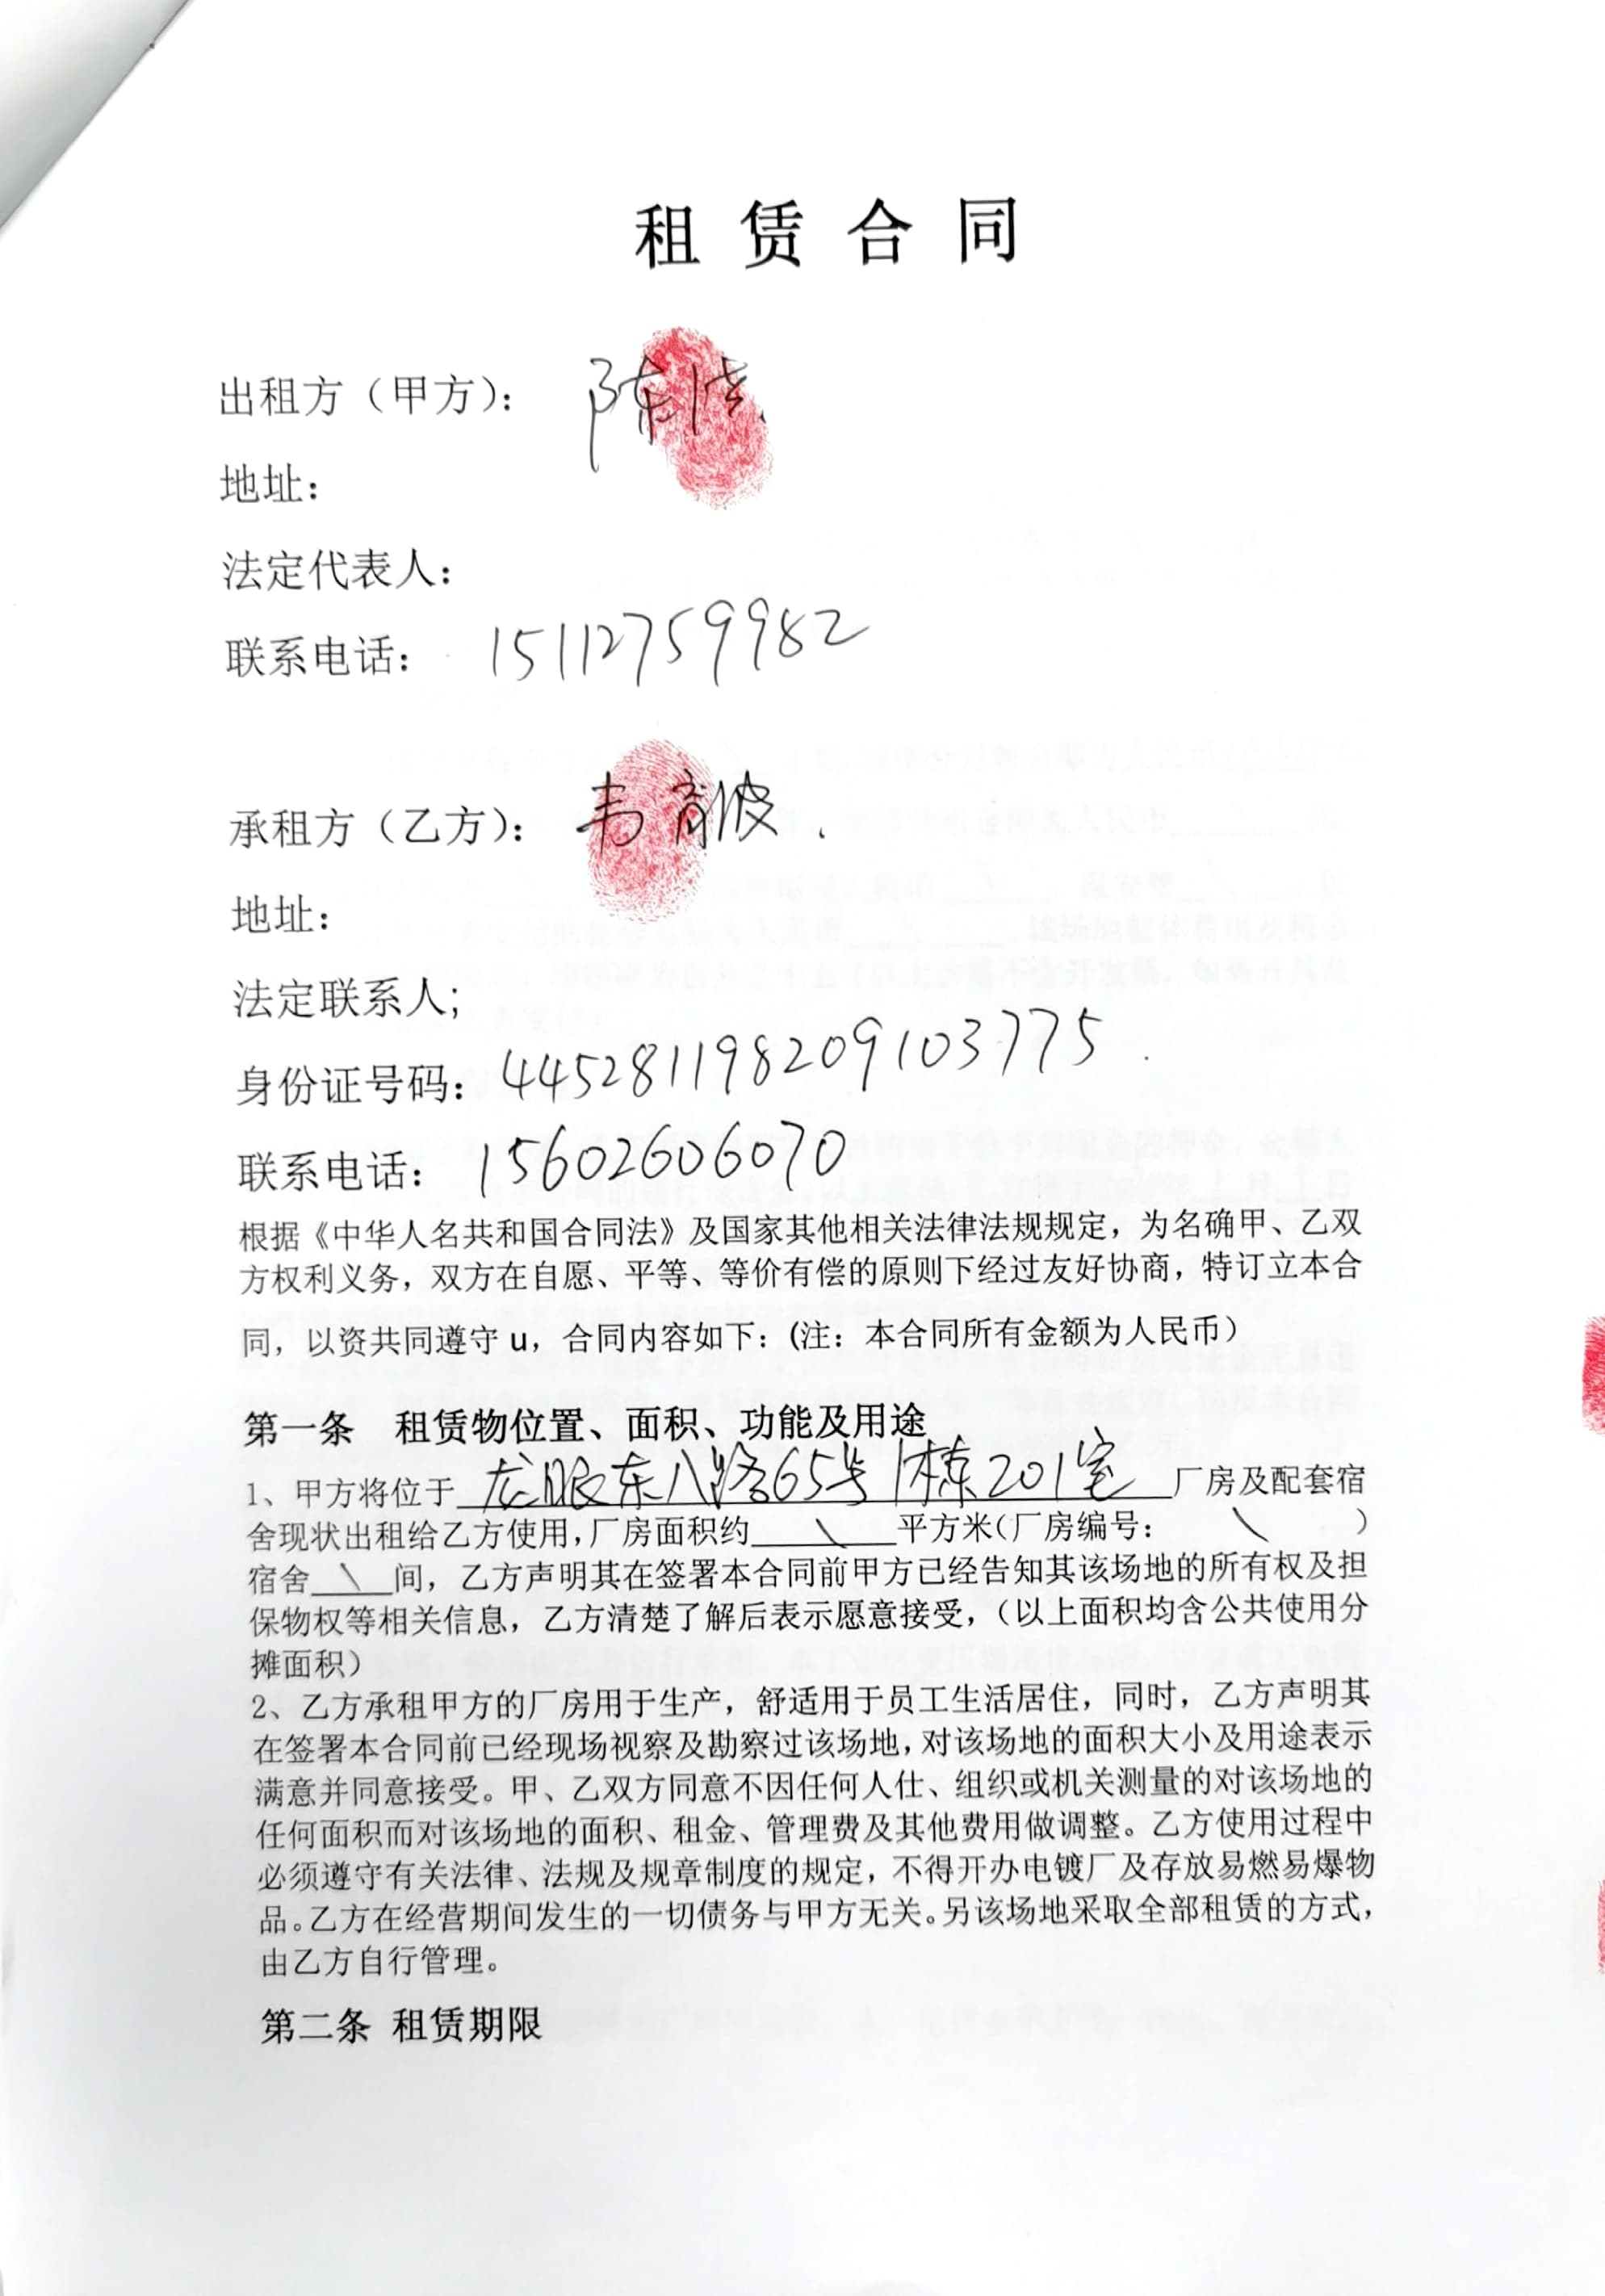 租赁合同
出租方（甲方）： 陈浩
地址：
法定代表人：
联系电话： 15112759982
承租方（乙方）： 韦育波
地址：
法定联系人;
身份证号码： 445281198209103775
联系电话： 15602606070
根据《中华人名共和国合同法》及国家其他相关法律法规规定，为名确甲、乙双
方权利义务，双方在自愿、平等、等价有偿的原则下经过友好协商，特订立本合
同，以资共同遵守 u，合同内容如下：(注：本合同所有金额为人民币）
第一条 租赁物位置、面积、功能及用途
1、甲方将位于 龙眼东八路65号1栋201室 厂房及配套宿
舍现状出租给乙方使用,厂房面积约 \ 平方米(厂房编号： \ ）
宿舍 \ 间，乙方声明其在签署本合同前甲方已经告知其该场地的所有权及担
保物权等相关信息，乙方清楚了解后表示愿意接受，（以上面积均含公共使用分
摊面积）
2、乙方承租甲方的厂房用于生产，舒适用于员工生活居住，同时，乙方声明其
在签署本合同前已经现场视察及勘察过该场地，对该场地的面积大小及用途表示
满意并同意接受。甲、乙双方同意不因任何人仕、组织或机关测量的对该场地的
任何面积而对该场地的面积、租金、管理费及其他费用做调整。乙方使用过程中
必须遵守有关法律、法规及规章制度的规定，不得开办电镀厂及存放易燃易爆物
品。乙方在经营期间发生的一切债务与甲方无关。另该场地采取全部租赁的方式，
由乙方自行管理。
第二条 租赁期限